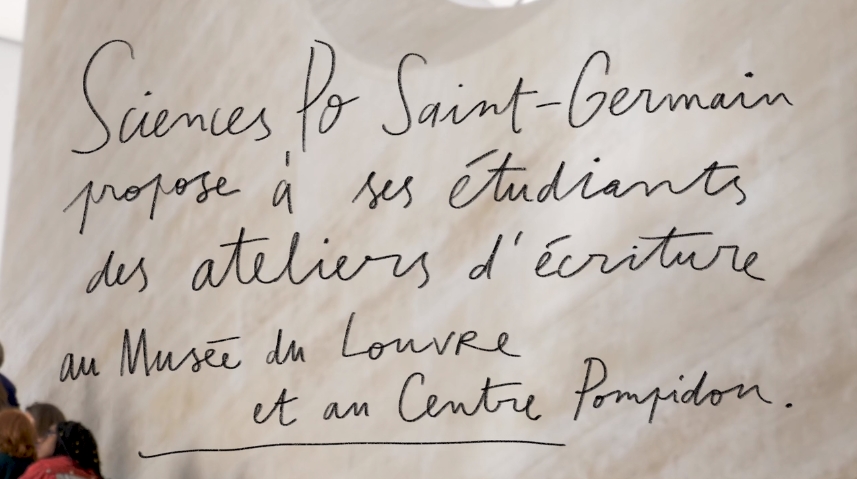 Sciences Po Saint-Germain
propose à ses étudiants
des ateliers d'écriture
au Musée du Louvre
et au Centre Pompidou.